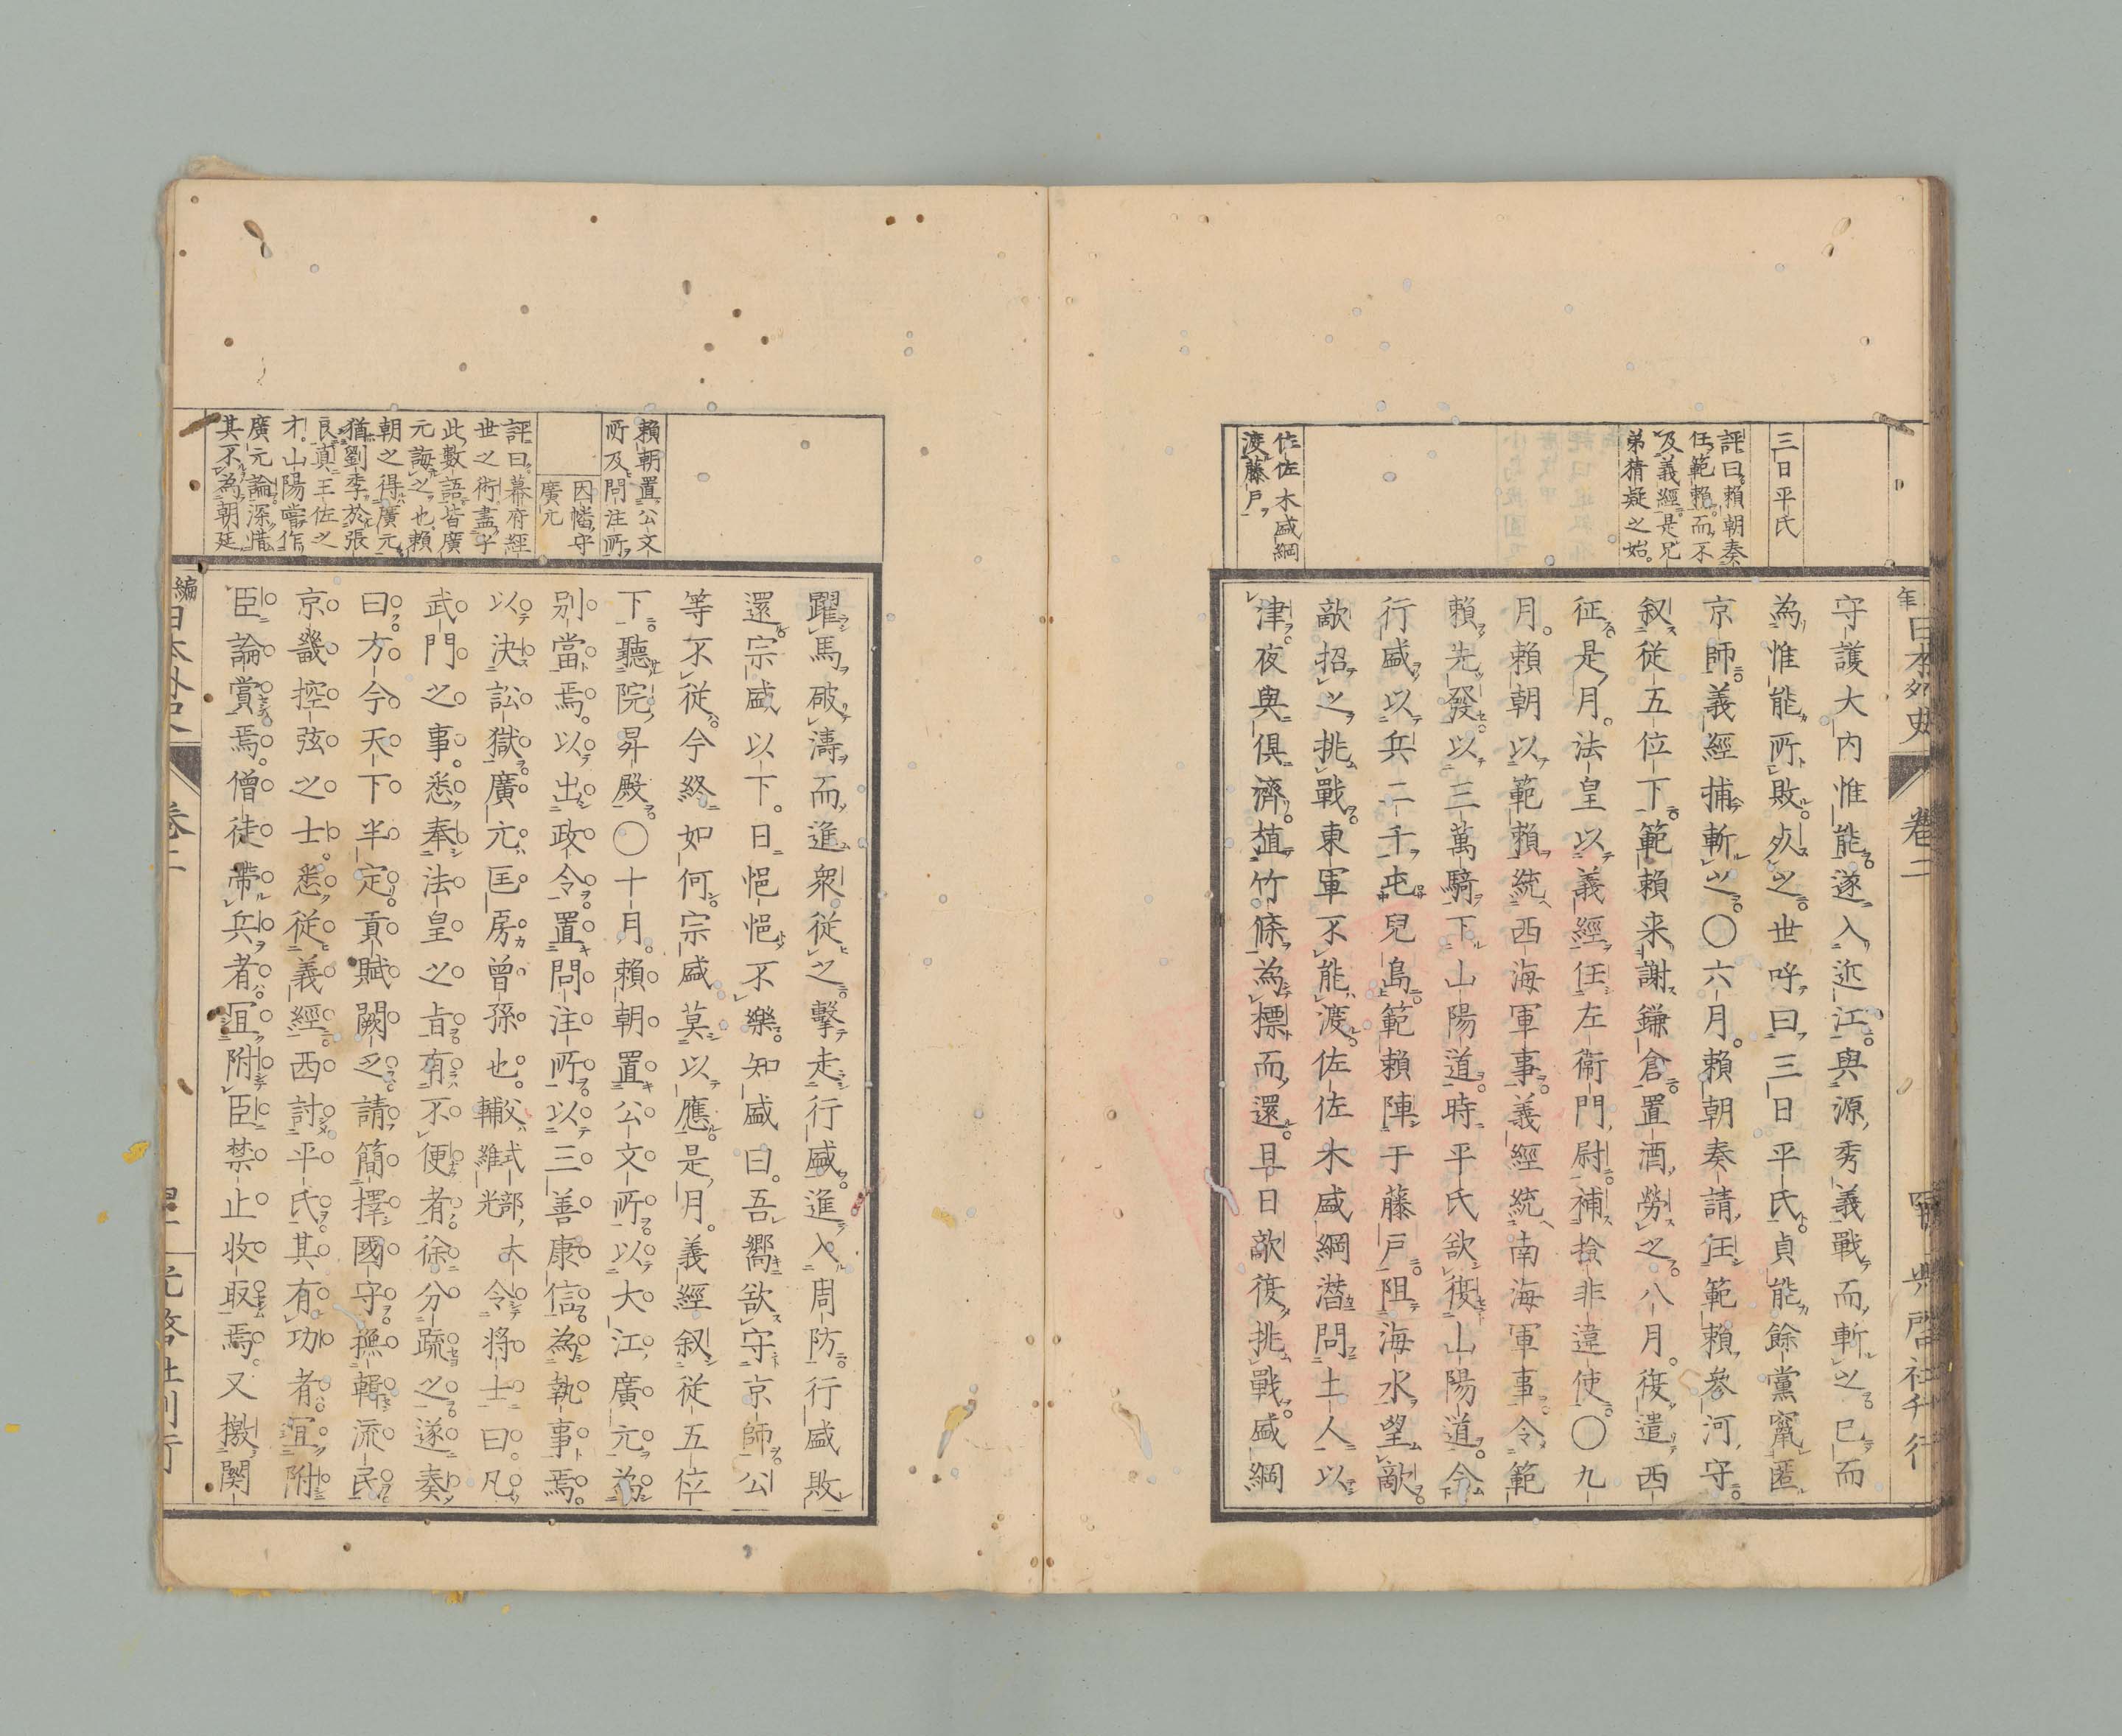 日本外史
卷二
守護大内惟能遂入近江與源秀義戰而斬之已而
為惟能所敗夾之世呼曰三日平氏貞能餘黨竄匿
京師義經捕斬之〇六月賴朝奏請任範賴參河守
叙從五位下範賴来謝鎌倉置酒勞之八月復遣西
征是月法皇以義經任左衞門尉補撿非違使〇九
月賴朝以範賴統西海軍事義經統南海軍事令範
賴先發以三萬騎下山陽道時平氏欲復山陽道令
行盛以兵二千屯兒島範賴陣于藤戶阻海水望敵
敵招之挑戰東軍不能渡佐佐木盛綱潛問土人以
津夜與俱濟植竹條為標而還旦日敵復挑戰盛綱
三日平氏
評曰賴朝奏
任範賴而不
及義經是兄
弟猜疑之始
佐佐木盛綱
渡藤戶
躍馬破濤而進衆從之擊走行盛進入周防行盛敗
還宗盛以下日悒悒不樂知盛曰吾嚮欲守京師公
等不從今終如何宗盛莫以應是月義經叙從五位
下聽院昇殿〇十月賴朝置公文所以大江廣元為
別當焉以出政令置問注所以三善康信為執事焉
以決訟獄廣元匡房曾孫也父式部大輔維光令將士曰凡
武門之事悉奉法皇之旨有不便者徐分疏之遂奏
曰方今天下半定貢賦闕乏請簡擇國守撫輯流民
京畿控弦之士悉從義經西討平氏其有功者宜附
臣論賞焉僧徒帶兵者宜附臣禁止收取焉又檄関
賴朝置公文
所及問注所
因幡守
廣元
評曰幕府經
世之術盡乎
此數語皆廣
元誨之也賴
朝之得廣元
猶劉季於張
良真王佐之
才山陽嘗作
廣元論深惜
其不為朝廷
編
日本外史
卷二